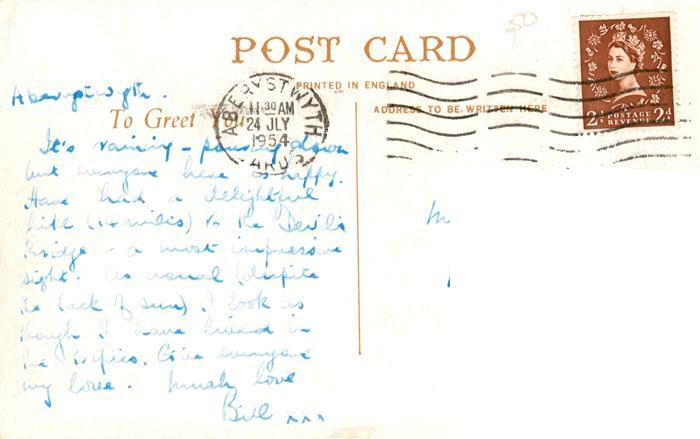 POST CARD
PRINTED IN ENGLAND
Aberystwyth.
To Greet You
ADDRESS TO BE WRITTEN HERE
ABERYSTWYTH
11 30 AM
24 JLY
1954
CARDS
2D POSTAGE REVENUE 2D
50
It's raining - pouring down
but everyone here is happy.
Have had a delightful
hike (14 miles) to the Devil's
Bridge - a most impressive
sight. As usual (despite
the lack of sun) I look as
though I have lived in
the tropics. Give everyone
my love. Much love
Bill xxx
M